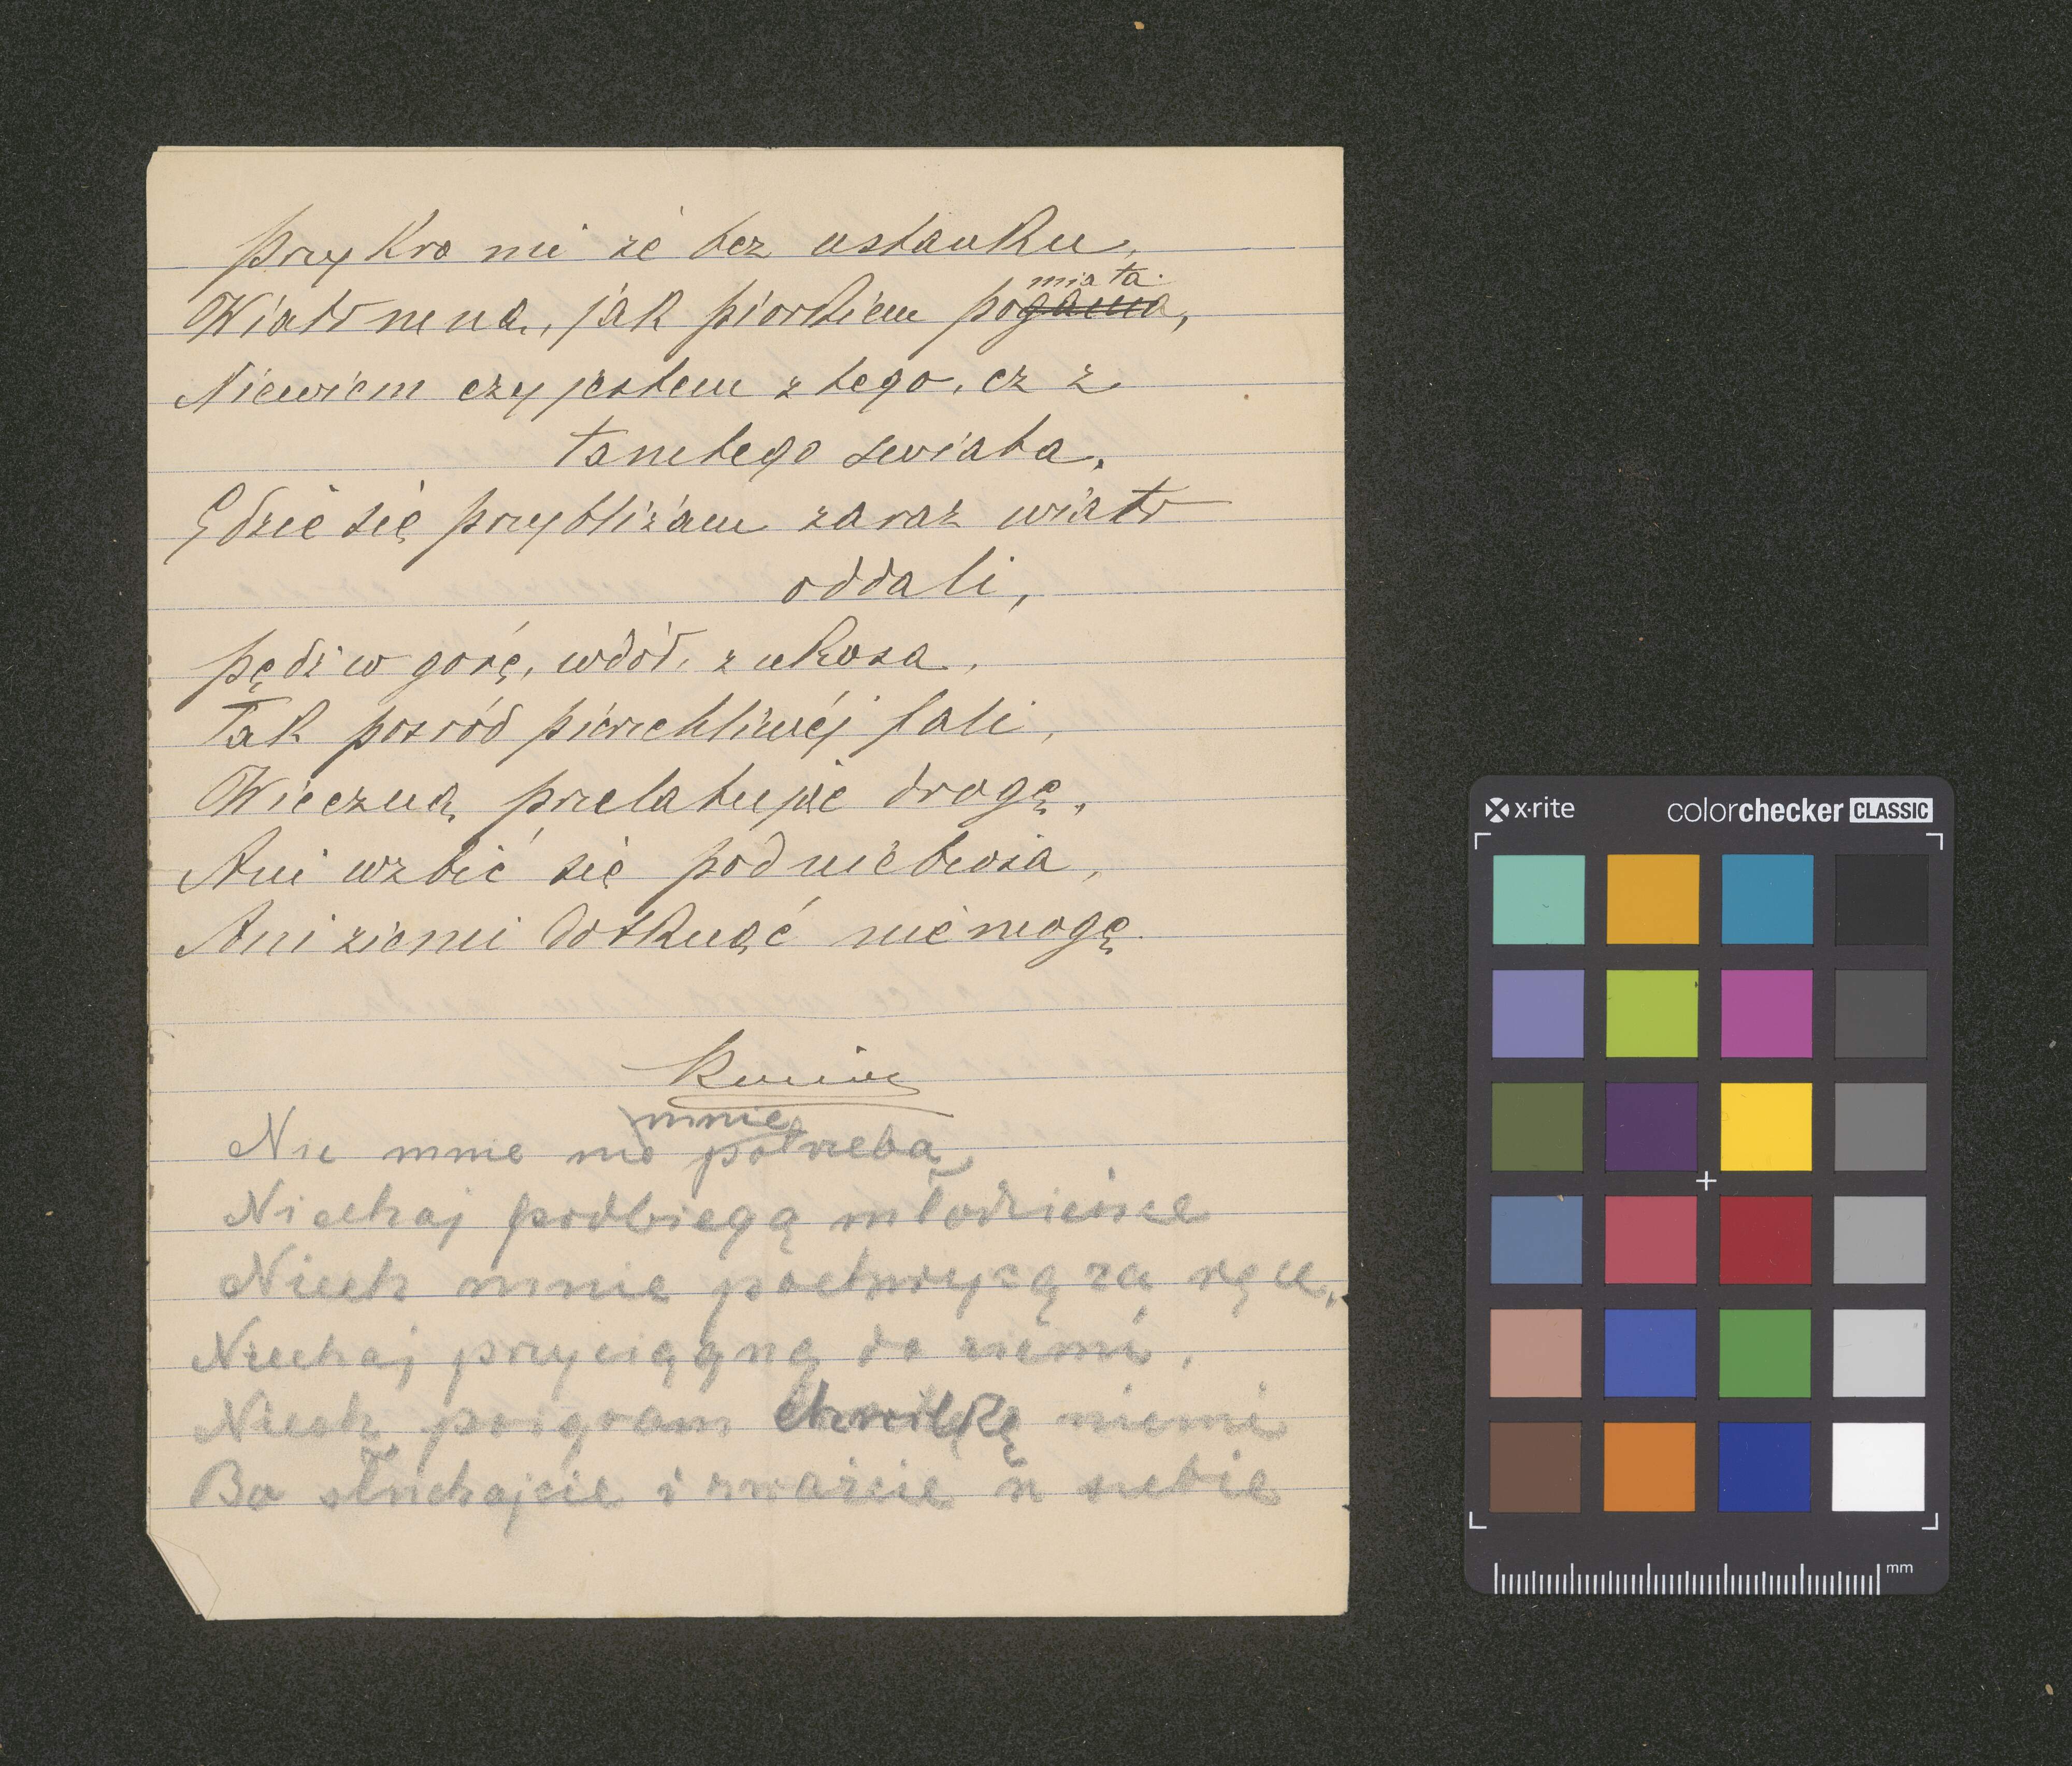 przykro mi że bez ustanku,
miata.
Wiatr mną, jak piorkiem pogania,
Niewiem czy jestem z tego, cz z
tamtego swiata.
Gdzie się przybliżam zaraz wiatr
oddali,
pędzi w gorę, wdół, z ukosa,
Tak pośród pierzchliwéj fali,
Wieczną przelatuje drogę,
Ani wzbić się pod niebiosa,
Ani ziemi dotknąć nie mogę.
Koniec
mnie
Nic mnie nie potrzeba
Niechaj podbiegą młodzieńce
Niech mnie pochwycą za ręce,
Niechaj przyciągną do ziemi,
Niech poigram chwilkę niemi
Bo słuchajcie i zważcie u siebie
x-rite colorchecker CLASSIC
mm